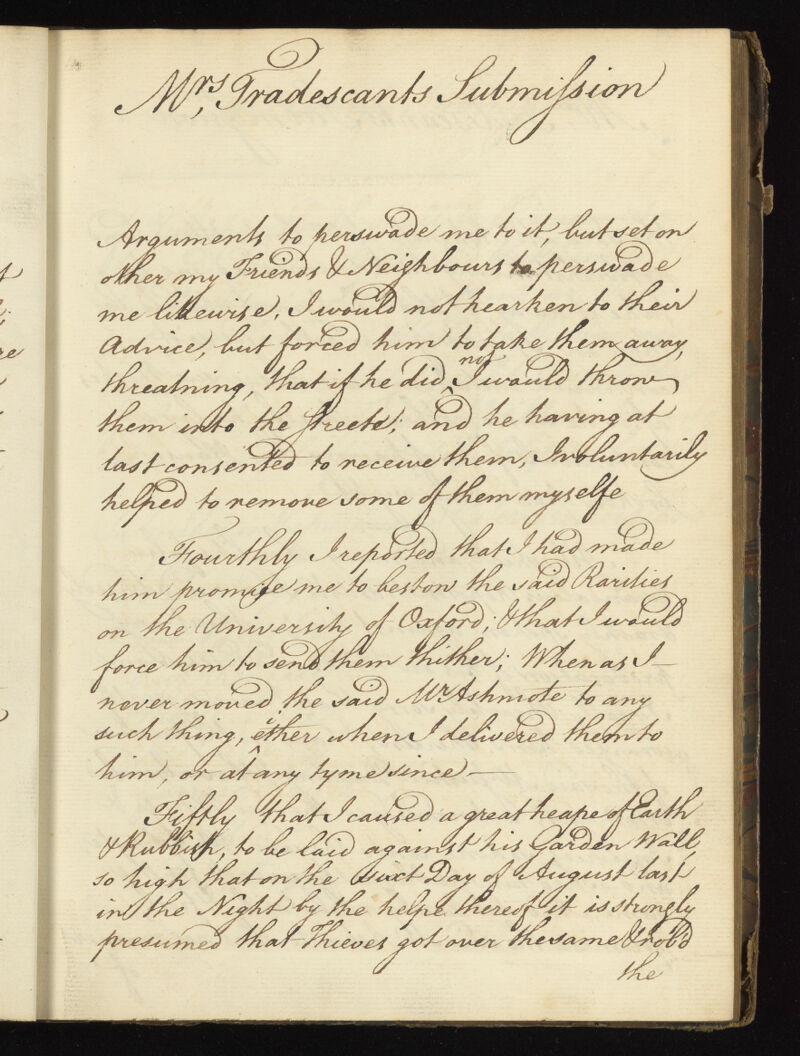 Mrs, Tradescants Submission
Arguments to perswade me to it, but set on
other my Friends & Neighbours to perswade
me likewise, I would not hearken to their
Advice, but forced him to take them away,
threatning, that if he did not I would throw
them into the streets; and he having at
last consented to receive them, I voluntarily
helped to remove some of them myselfe
Fourthly I reported that I had made
him promise me to bestow the said Rarities
on the University of Oxford; & that I would
force him to send them thither; When as I
never moved the said Mr Ashmole to any
such thing, ether when I delivered them to
him, or at any tyme since
Fiftly that I caused a great heape of Earth
& Rubbish, to be laid against his Garden Wall,
so high that on the sixt Day of August last
in the Night by the helpe thereof it is strongly
presumed that Thieves got over the same & rob'd
the